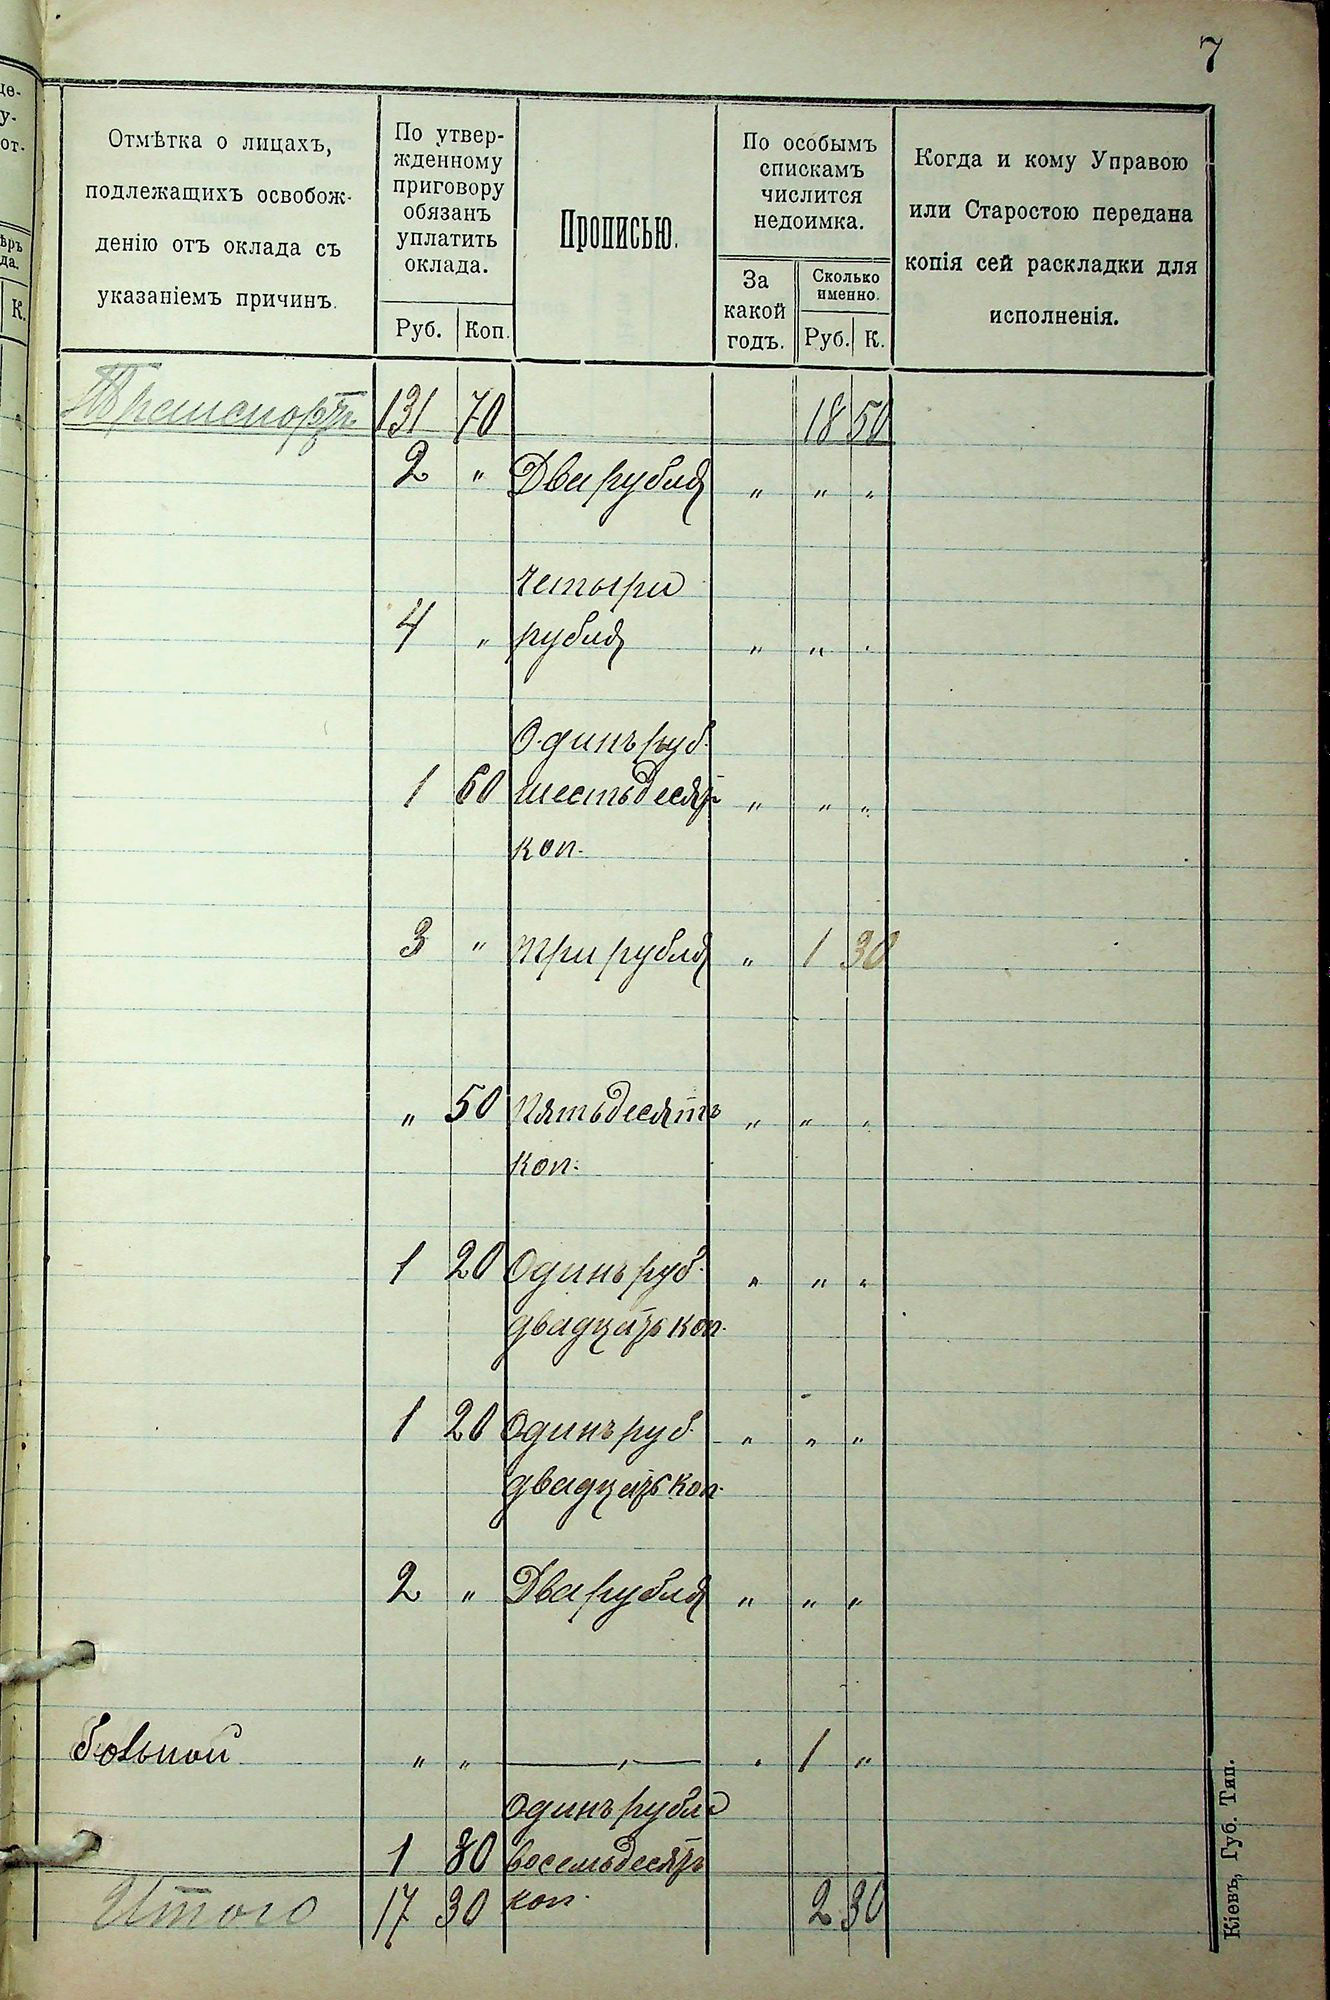 7
це-
у-
от-
ѣръ
да.
К.
Отмѣтка о лицахъ,
подлежащихъ освобож-
денію отъ оклада съ
указаніемъ причинъ.
По утвер-
жденному
приговору
обязанъ
уплатить
оклада.
Руб. Коп.
Прописью.
По особымъ
спискамъ
числится
недоимка.
За
какой
годъ.
Сколько
именно.
Руб. К.
Когда и кому Управою
или Старостою передана
копія сей раскладки для
исполненія.
Транспортъ 131 70 18 50
2 " Два рубля " " "
четыри
4 " рубля " " "
Одинъ руб.
1 60 шестьдесят " " "
коп.
3 " три рубля " 1 30
" 50 пятьдесятъ " " "
коп.
1 20 Одинъ руб. " " "
двадцать коп.
1 20 Одинъ руб. " " "
двадцать коп.
2 " Два рубля " " "
больной " " — " — " 1 "
Одинъ рубль
1 80 восемьдесятъ
коп.
Итого 17 30 2 30
Кіевъ, Губ. Тип.